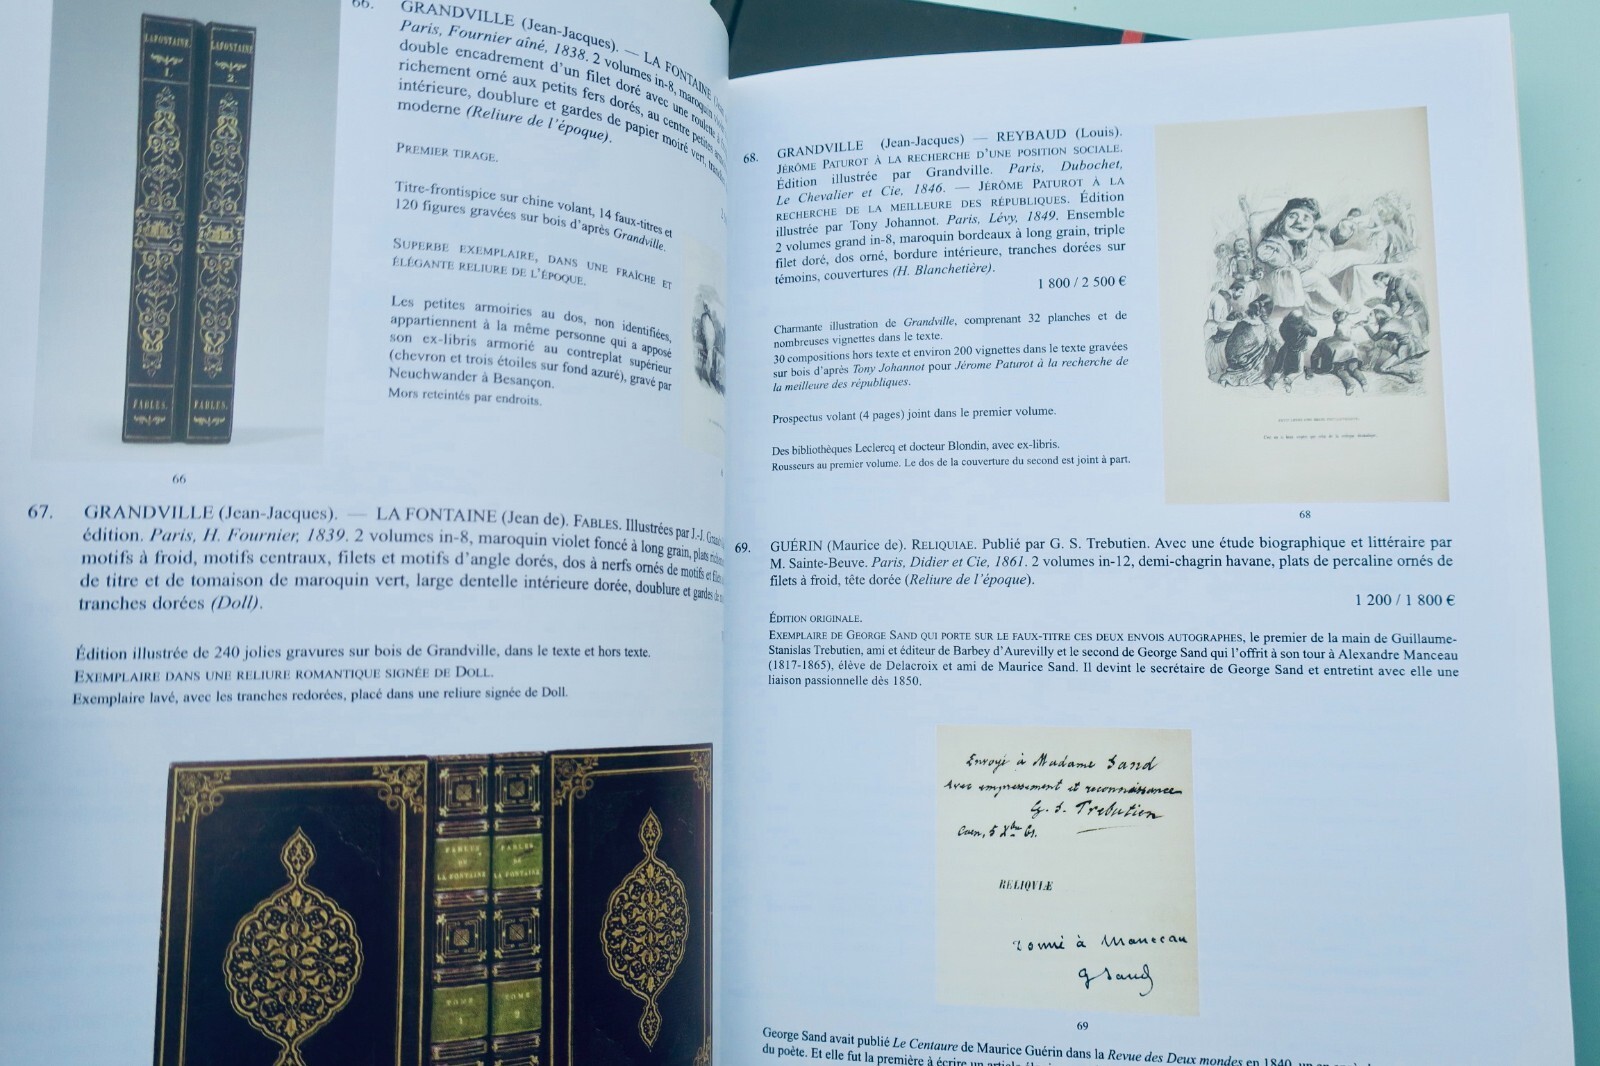 LAFONTAINE
1.
FABLES.
LAFONTAINE
2.
FABLES.
66
66. GRANDVILLE (Jean-Jacques). — LA FONTAINE
Paris, Fournier aîné, 1838. 2 volumes in-8, maroquin
double encadrement d'un filet doré avec une roulette
richement orné aux petits fers dorés, au centre petites
intérieure, doublure et gardes de papier moiré vert,
moderne (Reliure de l'époque).
PREMIER TIRAGE.
Titre-frontispice sur chine volant, 14 faux-titres et
120 figures gravées sur bois d'après Grandville.
SUPERBE EXEMPLAIRE, DANS UNE FRAÎCHE ET
ÉLÉGANTE RELIURE DE L'ÉPOQUE.
Les petites armoiries au dos, non identifiées,
appartiennent à la même personne qui a apposé
son ex-libris armorié au contreplat supérieur
(chevron et trois étoiles sur fond azuré), gravé par
Neuchwander à Besançon.
Mors reteintés par endroits.
67. GRANDVILLE (Jean-Jacques). — LA FONTAINE (Jean de). FABLES. Illustrées par J.-J.
édition. Paris, H. Fournier, 1839. 2 volumes in-8, maroquin violet foncé à long grain, plats
motifs à froid, motifs centraux, filets et motifs d'angle dorés, dos à nerfs ornés de motifs et
de titre et de tomaison de maroquin vert, large dentelle intérieure dorée, doublure et gardes de
tranches dorées (Doll).
Édition illustrée de 240 jolies gravures sur bois de Grandville, dans le texte et hors texte.
EXEMPLAIRE DANS UNE RELIURE ROMANTIQUE SIGNÉE DE DOLL.
Exemplaire lavé, avec les tranches redorées, placé dans une reliure signée de Doll.
FABLES
DE
LA FONTAINE
TOME
1
FABLES
DE
LA FONTAINE
TOME
2
68. GRANDVILLE (Jean-Jacques) — REYBAUD (Louis).
JÉRÔME PATUROT À LA RECHERCHE D'UNE POSITION SOCIALE.
Édition illustrée par Grandville. Paris, Dubochet,
Le Chevalier et Cie, 1846. — JÉRÔME PATUROT À LA
RECHERCHE DE LA MEILLEURE DES RÉPUBLIQUES. Édition
illustrée par Tony Johannot. Paris, Lévy, 1849. Ensemble
2 volumes grand in-8, maroquin bordeaux à long grain, triple
filet doré, dos orné, bordure intérieure, tranches dorées sur
témoins, couvertures (H. Blanchetière).
1 800 / 2 500 €
Charmante illustration de Grandville, comprenant 32 planches et de
nombreuses vignettes dans le texte.
30 compositions hors texte et environ 200 vignettes dans le texte gravées
sur bois d'après Tony Johannot pour Jérome Paturot à la recherche de
la meilleure des républiques.
Prospectus volant (4 pages) joint dans le premier volume.
Des bibliothèques Leclercq et docteur Blondin, avec ex-libris.
Rousseurs au premier volume. Le dos de la couverture du second est joint à part.
68
69. GUÉRIN (Maurice de). RELIQUIAE. Publié par G. S. Trebutien. Avec une étude biographique et littéraire par
M. Sainte-Beuve. Paris, Didier et Cie, 1861. 2 volumes in-12, demi-chagrin havane, plats de percaline ornés de
filets à froid, tête dorée (Reliure de l'époque).
1 200 / 1 800 €
ÉDITION ORIGINALE.
EXEMPLAIRE DE GEORGE SAND QUI PORTE SUR LE FAUX-TITRE CES DEUX ENVOIS AUTOGRAPHES, le premier de la main de Guillaume-
Stanislas Trebutien, ami et éditeur de Barbey d'Aurevilly et le second de George Sand qui l'offrit à son tour à Alexandre Manceau
(1817-1865), élève de Delacroix et ami de Maurice Sand. Il devint le secrétaire de George Sand et entretint avec elle une
liaison passionnelle dés 1850.
Envoyé à Madame Sand
Avec empressement et reconnaissance
G. S. Trebutien
Caen, 5 Xbre 61.
RELIQVIÆ
donné à Manceau
G Sand
69
George Sand avait publié Le Centaure de Maurice Guérin dans la Revue des Deux mondes en 1840,
du poète. Et elle fut la première à écrire un article